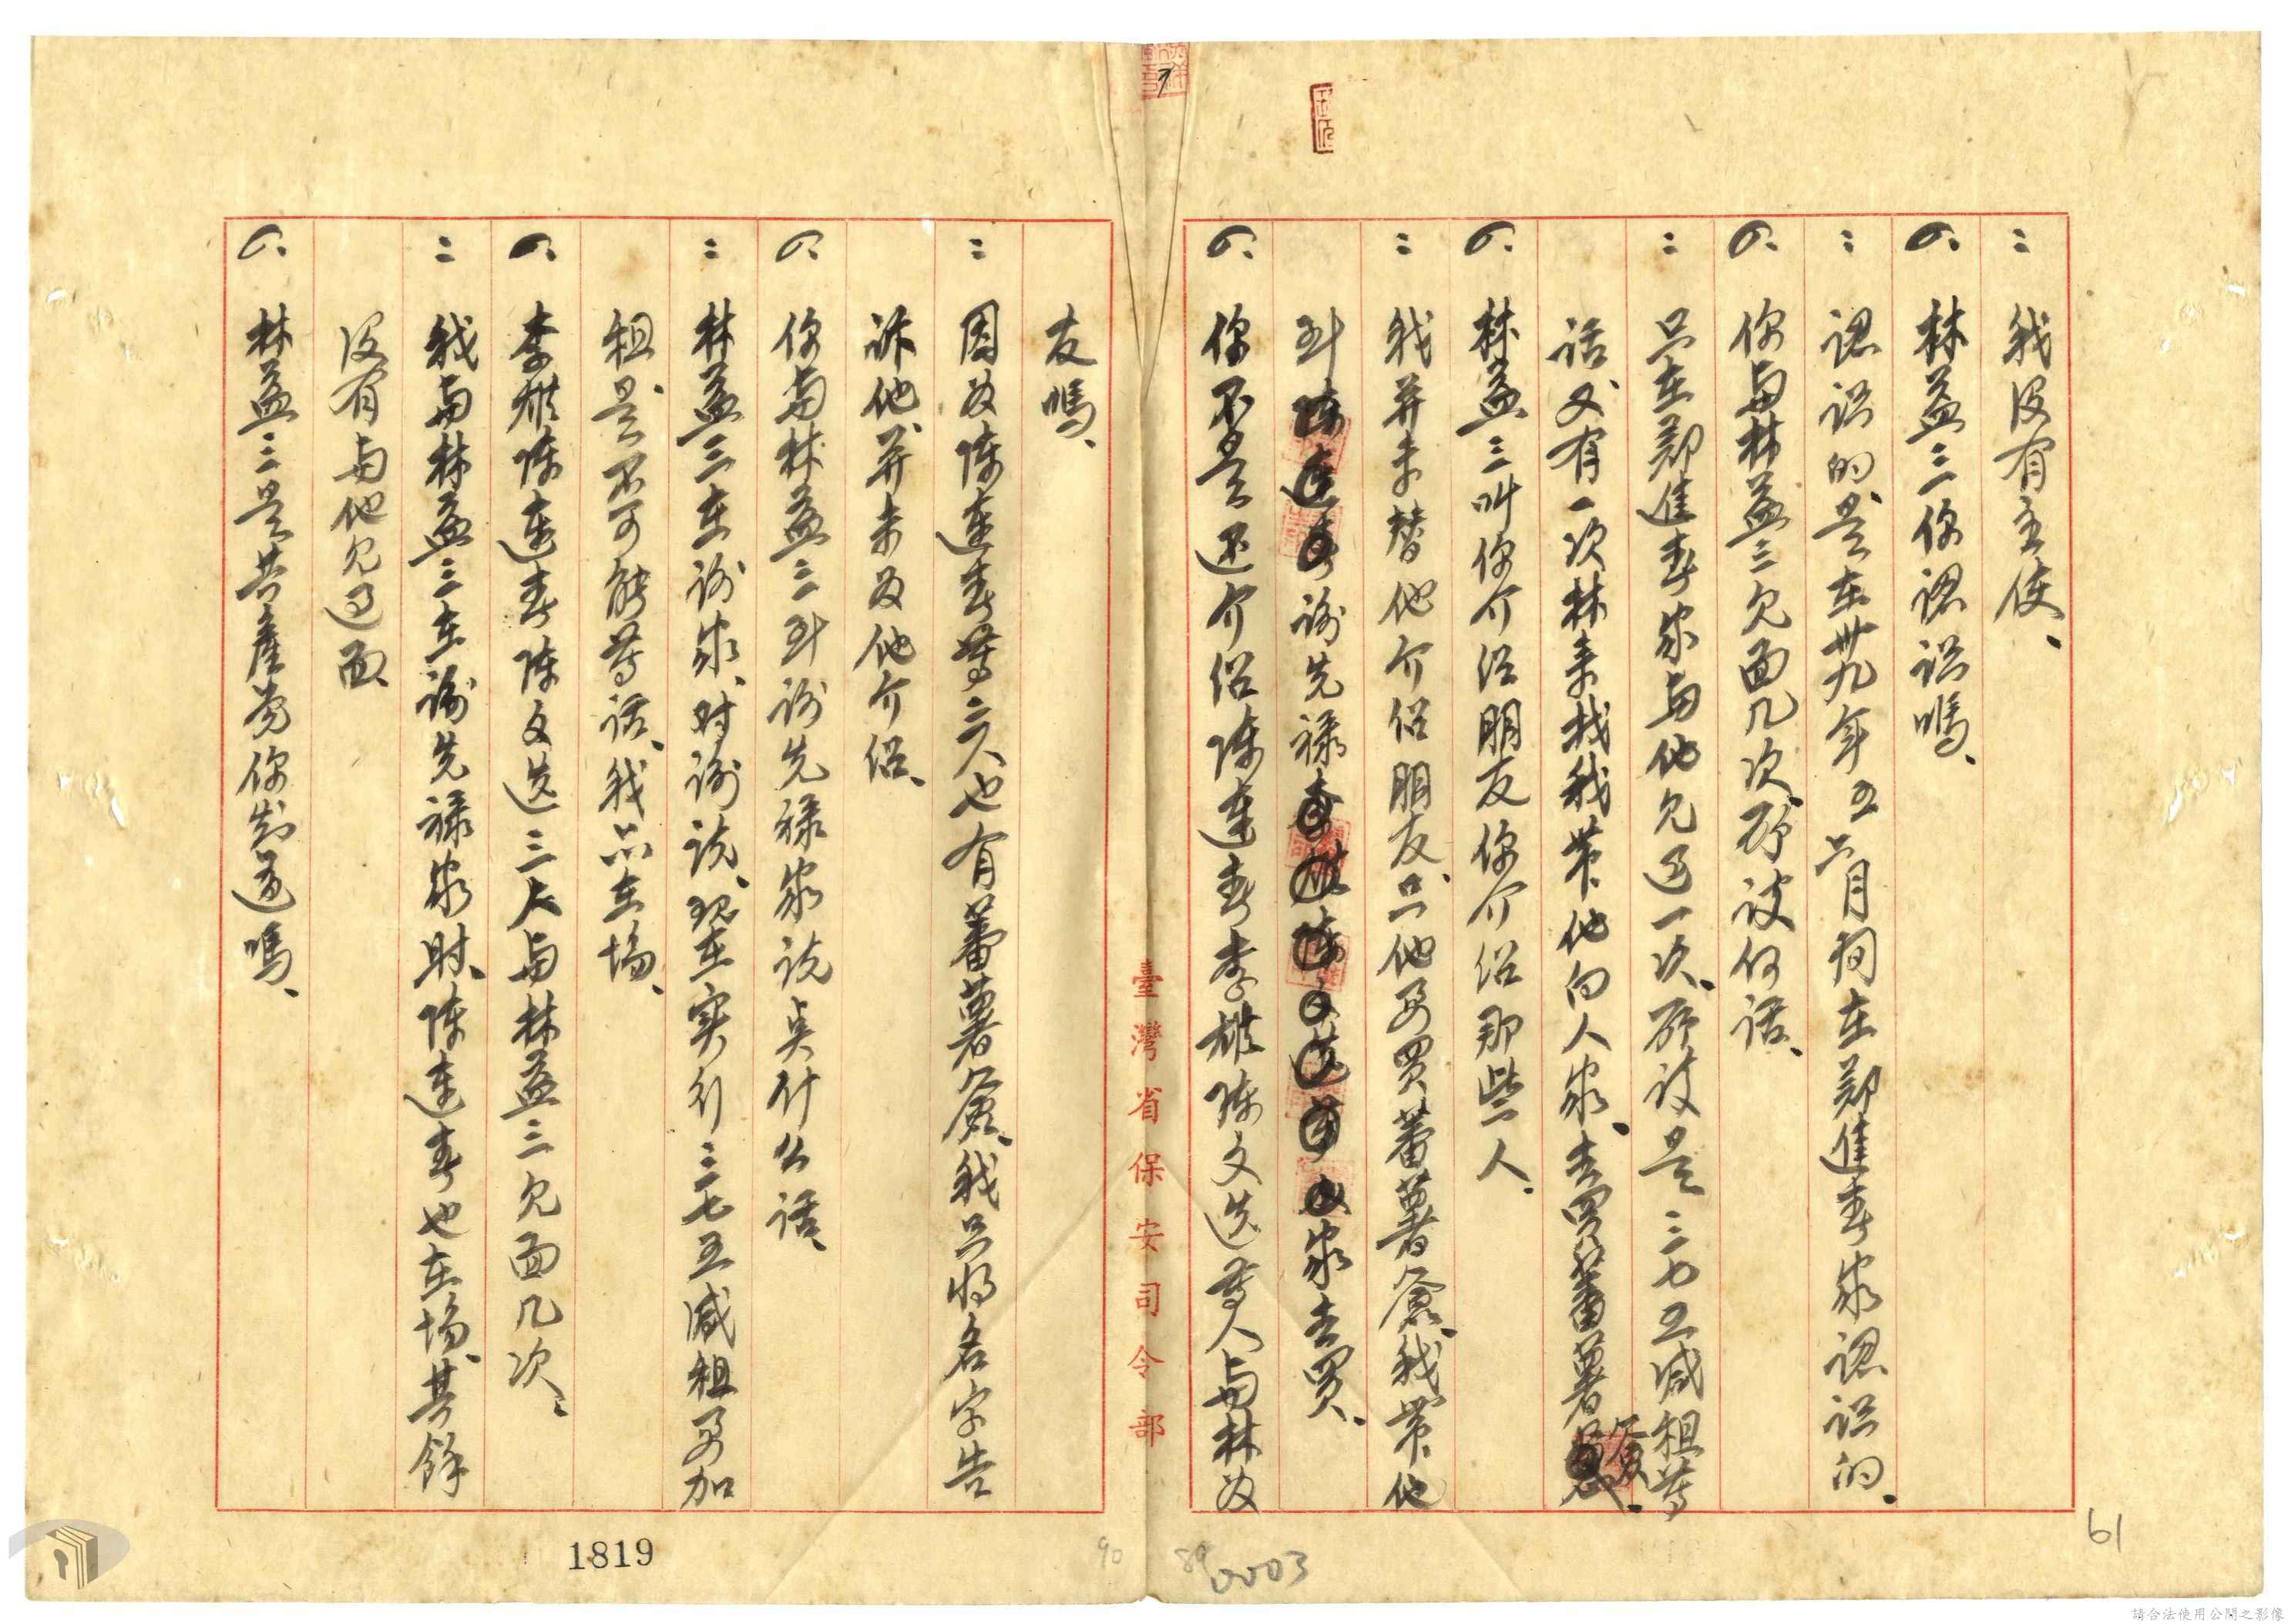 : 我沒有主使、
ο: 林益三你認识嗎、
: 認识的、是在卅九年五六月间在鄭進春家認识的、
ο: 你與林益三見面几次、所談何話、
: 只在鄭進春家與他見过一次、所談是三七五減租等
話、又有一次林來找我帶他向人家、去買蕃薯簽、
ο: 林益三叫你介绍朋友你介绍那些人、
: 我并未替他介绍朋友、只他要買蕃薯簽、我帶他
到謝先禄家去買、
ο: 你不是还介绍陳連春李雄陳文选等人與林为
友嗎、
: 因为陳連春等三人也有蕃薯簽、我只將名字告
訴他、并未为他介绍、
ο: 你與林益三到謝先禄家說兵什么話、
: 林益三在謝家、对謝說、現在实行三七五減租要加
租是不可能等話、我亦在場、
ο: 李雄陳連春陳文选三人與林益三見面几次、
: 我與林益三在謝先禄家財、陳連春也在場、其餘
沒有與他見过面、
ο: 林益三是共產党你知道嗎、
臺灣省保安司令部
1819
90
89
0003
61
請合法使用公開之影像